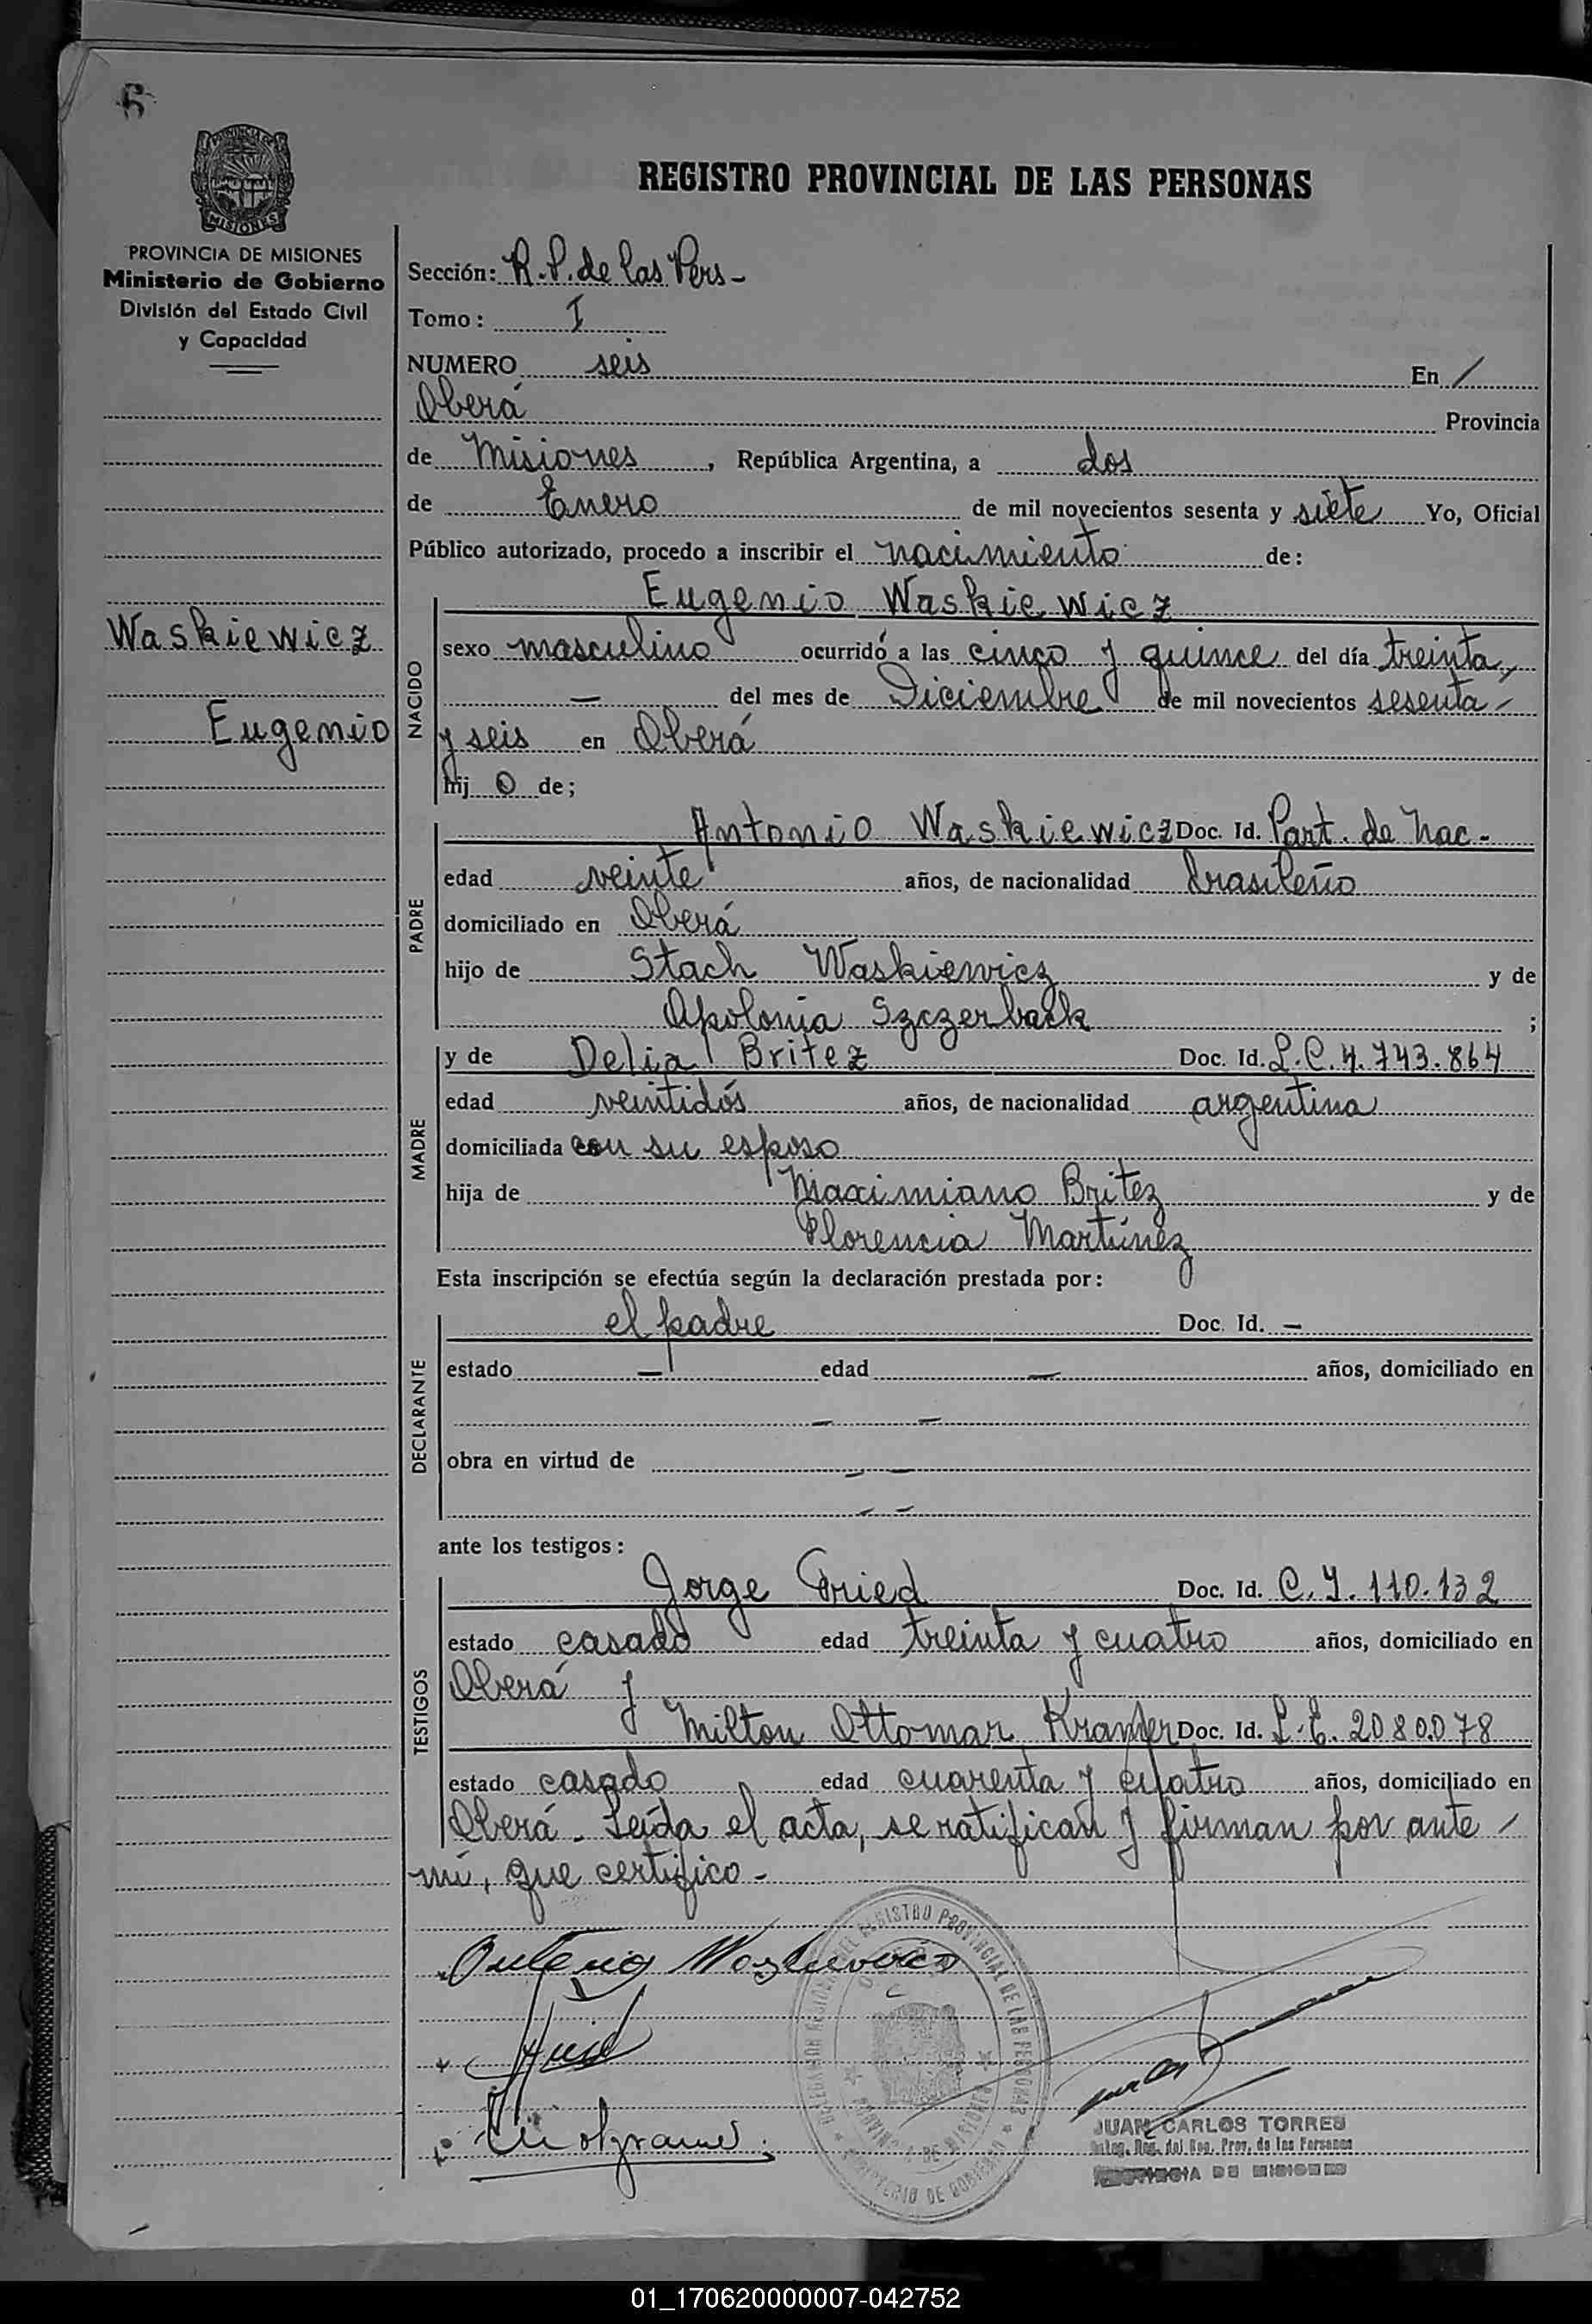 6
PROVINCIA DE MISIONES
Ministerio de Gobierno
División del Estado Civil
y Capacidad
Waskiewicz
Eugenio
REGISTRO PROVINCIAL DE LAS PERSONAS
Sección: R.P. de las Pers-
Tomo: I
NUMERO seis En /
Oberá Provincia
de Misiones, República Argentina, a dos
de Enero de mil novecientos sesenta y siete Yo, Oficial
Público autorizado, procedo a inscribir el nacimiento de:
NACIDO
Eugenio Waskiewicz
sexo masculino ocurrido a las cinco y quince del día treinta,
— del mes de Diciembre de mil novecientos sesenta /
y seis en Oberá
hij o de;
PADRE
Antonio Waskiewicz Doc. Id. Part. de Nac-
edad veinte años, de nacionalidad brasileño
domiciliado en Oberá
hijo de Stach Waskiewicz y de
Apolonia Szczerback ;
MADRE
y de Delia Britez Doc. Id. L.C. 4.743.864
edad veintidós años, de nacionalidad argentina
domiciliada con su esposo
hija de Maximiano Britez y de
Florencia Martínez
Esta inscripción se efectúa según la declaración prestada por:
DECLARANTE
el padre Doc. Id. —
estado — edad — años, domiciliado en
— —
obra en virtud de — —
— —
ante los testigos:
TESTIGOS
Jorge Fried Doc. Id. C.I. 110.132
estado casado edad treinta y cuatro años, domiciliado en
Oberá y
Milton Ottomar Kramer Doc. Id. L.E. 2080.078
estado casado edad cuarenta y cuatro años, domiciliado en
Oberá. Leída el acta, se ratifican y firman por ante /
mí, que certifico-
DELEGACION REGIONAL DEL REGISTRO PROVINCIAL DE LAS PERSONAS
PROVINCIA DE MISIONES
MINISTERIO DE GOBIERNO
JUAN CARLOS TORRES
Deleg. Reg. del Reg. Prov. de las Personas
PROVINCIA DE MISIONES
01_170620000007-042752